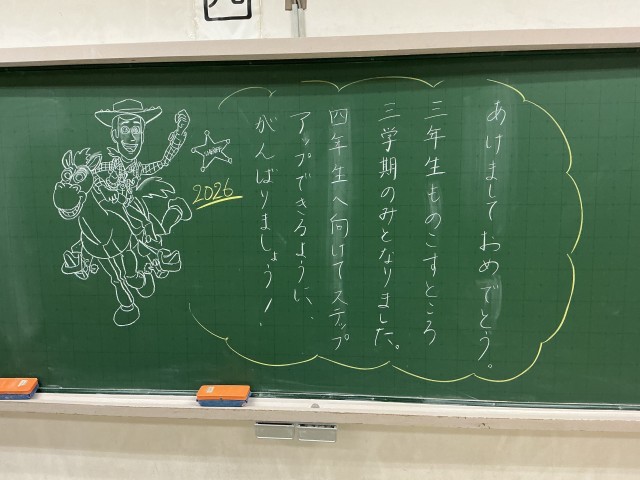 あけましておめでとう。
三年生ものこすところ
三学期のみとなりました。
四年生へ向けてステップ
アップできるように、
がんばりましょう!
2026